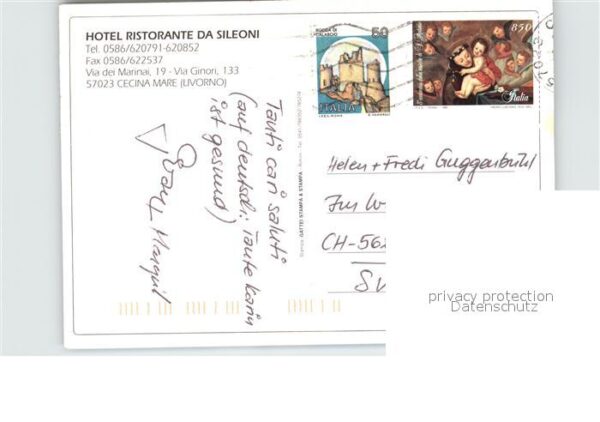 HOTEL RISTORANTE DA SILEONI
Tel. 0586/620791-620852
Fax 0586/622537
Via dei Marinai, 19 - Via Ginori, 133
57023 CECINA MARE (LIVORNO)
ROCCA DI
CALASCIO
50
ITALIA
850
Italia
Tanti cari saluti
(auf deutsch: Tante Karin
ist gesund)
Margrit
GATTEI STAMPA & STAMPA
Helen + Fredi Guggenbühl
Im W
CH-562
SV
privacy protection
Datenschutz